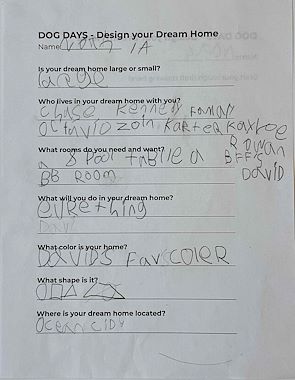 DOG DAYS - Design your Dream Home
Name
1A
Is your dream home large or small?
large
Who lives in your dream home with you?
chase kennedy FAMALY
OCTAVIO ZOIN KARTER
ROWAN
What rooms do you need and want?
A 8 POOl TABLE A BFFS
BB ROOM DAVID
What will you do in your dream home?
EVRETHING
What color is your home?
DAVIDS FAVCOLER
What shape is it?
Where is your dream home located?
OCEAN CIDY